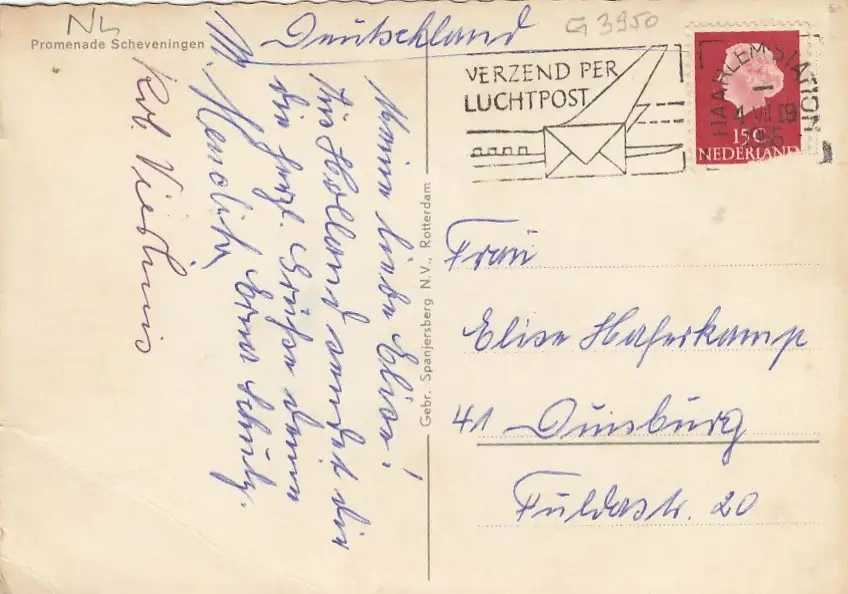 NL
G 3950
Promenade Scheveningen
Deutschland
VERZEND PER
LUCHTPOST
HAARLEM STATION
15 c
NEDERLAND
Meine liebe Elise!
Aus Holland sendet dir
die herzl. Grüße deine
Erna Schulz.
Gebr. Spanjersberg N.V., Rotterdam
Frau
Elise Haferkamp
41 Duisburg
Fuldastr. 20